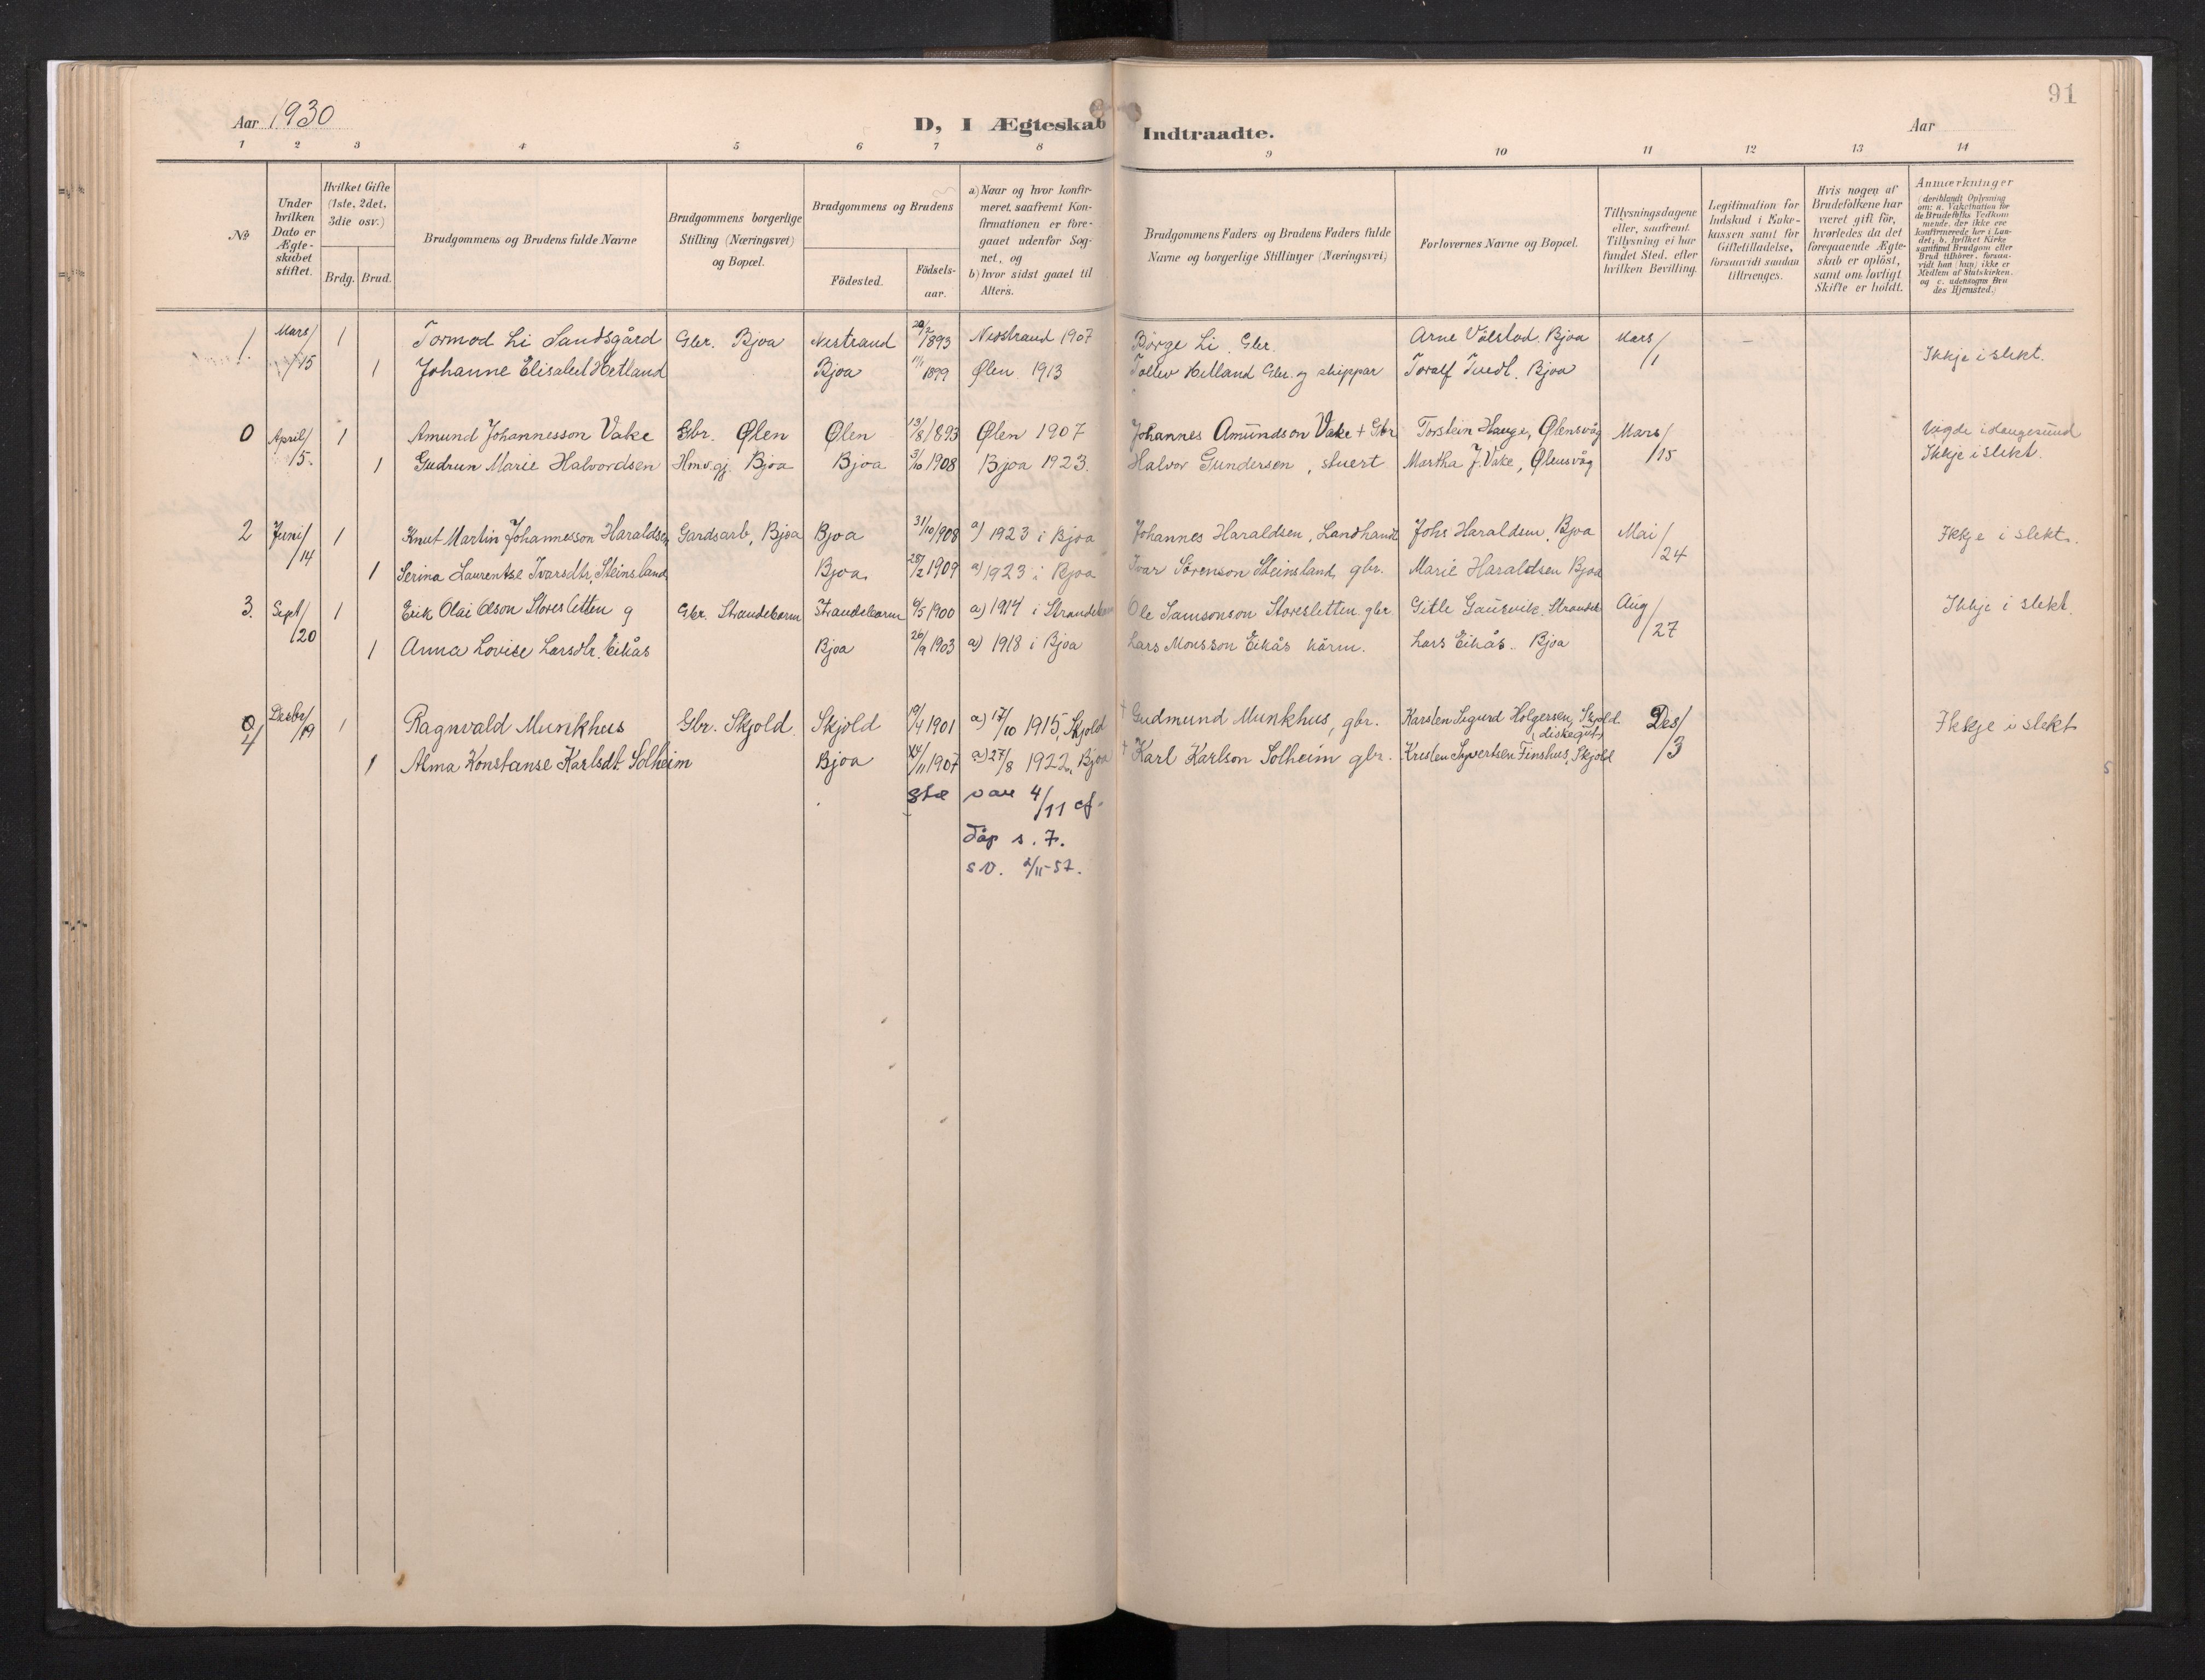 91
Aar 1930
D, I Ægteskab Indtraadte.
Aar
1 2 3 4 5 6 7 8 9 10 11 12 13 14
No
Under hvilken Dato er Ægte-skabet stiftet.
Hvilket Gifte (1ste, 2det, 3die osv.)
Brdg. Brud.
Brudgommens og Brudens fulde Navne
Brudgommens borgerlige Stilling (Næringsvei) og Bopæl.
Brudgommens og Brudens
Födested.
Födsels-aar.
a) Naar og hvor konfir-meret, saafremt Kon-firmationen er fore-gaaet udenfor Sog-net, og
b) hvor sidst gaaet til Alters.
Brudgommens Faders og Brudens Faders fulde Navne og borgerlige Stillinger (Næringsvei)
Forlovernes Navne og Bopæl.
Tillysningsdagene eller, saafremt Tillysning ei har fundet Sted, efter hvilken Bevilling.
Legitimation for Indskud i Enke-kassen samt for Giftetilladelse, forsaavidt saadan tiltrænges.
Hvis nogen af Brudefolkene har været gift för, hvorledes da det foregaaende Ægte-skab er oplöst, samt om lovligt Skifte er holdt.
Anmærkninger (deriblandt Oplysning om: a. Vakcination for de Brudefolks Vedkom-mende, der ikke ere konfirmerede her i Lan-det; b. hvilket Kirke-samfund Brudgom eller Brud tilhörer, forsaa-vidt han (hun) ikke er Medlem af Statskirken. og c. udensogns Bru-des Hjemsted.)
1. Mars/15 1 Tormod Li Sandsgård Gbr. Bjoa Nestrand 20/2 1893 Nedstrand 1907 Börge Li. Gbr. Arne Vålstad. Bjoa Mars/1
1 Johanne Elisabet Hetland Bjoa 11/1 1899 Ølen 1913 Tollev Hetland Gbr. og skippar Toralf Tvedt. Bjoa Ikkje i slekt.
0 April/5. 1 Amund Johannesson Vake Gbr. Ølen Ølen 13/8 1893 Ølen 1907 Johannes Amundson Vake + Gbr Torstein Hauge, Ølensvåg Mars/15 Vigde i Haugesund
1 Gudrun Marie Halvordsen Hmv.gj. Bjoa Bjoa 3/10 1908 Bjoa 1923. Halvor Gundersen, stuert Martha J. Vake, Ølensvåg Ikkje i slekt.
2 Juni/14 1 Knut Martin Johannesson Haraldsen Gardsarb, Bjoa Bjoa 31/10 1908 a) 1923 i Bjoa Johannes Haraldsen, Landhandl Johs Haraldsen, Bjoa Mai/24 Ikkje i slekt.
1 Serina Laurentse Ivarsdtr. Steinsland Bjoa. 28/2 1909 a) 1923 i Bjoa Ivar Sörenson Steinsland, gbr. Marie Haraldsen Bjoa
3. Sept/20 1 Erik Olai Olson Storesletten g Gbr. Strandebarm Strandebarm 6/5 1900 a) 1914 i Strandebarm Ole Samsonson Storesletten gbr. Gitle Gausvik. Strandeb Aug/27 Ikkje i slekt.
1 Anna Lovise Larsdtr. Eikås Bjoa 26/9 1903 a) 1918 i Bjoa Lars Monsson Eikås kårm. Lars Eikås. Bjoa
0 4 Desbr/19 1 Ragnvald Munkhus Gbr. Skjold. Skjold 19/4 1901 a) 17/10 1915, Skjold + Gudmund Munkhus, gbr. Karsten Sigurd Holgersen, Skjold (diskegut) Des/3 Ikkje i slekt
1 Alma Konstanse Karlsdt. Solheim Bjoa 11/1907 a) 27/8 1922, Bjoa + Karl Karlson Solheim gbr. Kristen Syvertsen Finshus, Skjold
var 4/11 cf.
dåp s. 7.
2/11-57.